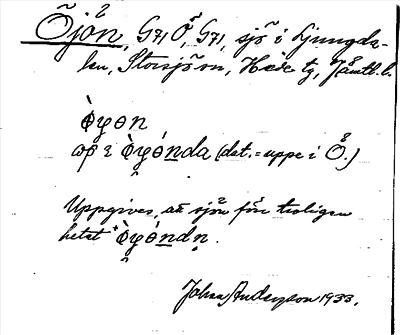 Öjön, G71 Ö, G71, sjö i Ljungda-
len, Storsjö sn, Hede tg, Jämtl. l.
òyɵn
ɷp ɛ òyɵ́nda (dat. = uppe i Ö.)
Uppgives, att sjön förr troligen
hetat *òyɵ́ndn̥.
Johan Anderzon 1933.